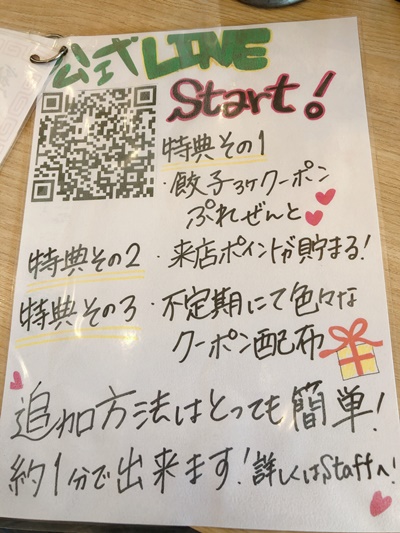 公式LINE
Start!
特典その1
・餃子3ヶクーポン
ぷれぜんと
特典その2 ・来店ポイントが貯まる!
特典その3 ・不定期にて色々な
クーポン配布
追加方法はとっても簡単!
約1分で出来ます!詳しくはStaffへ!